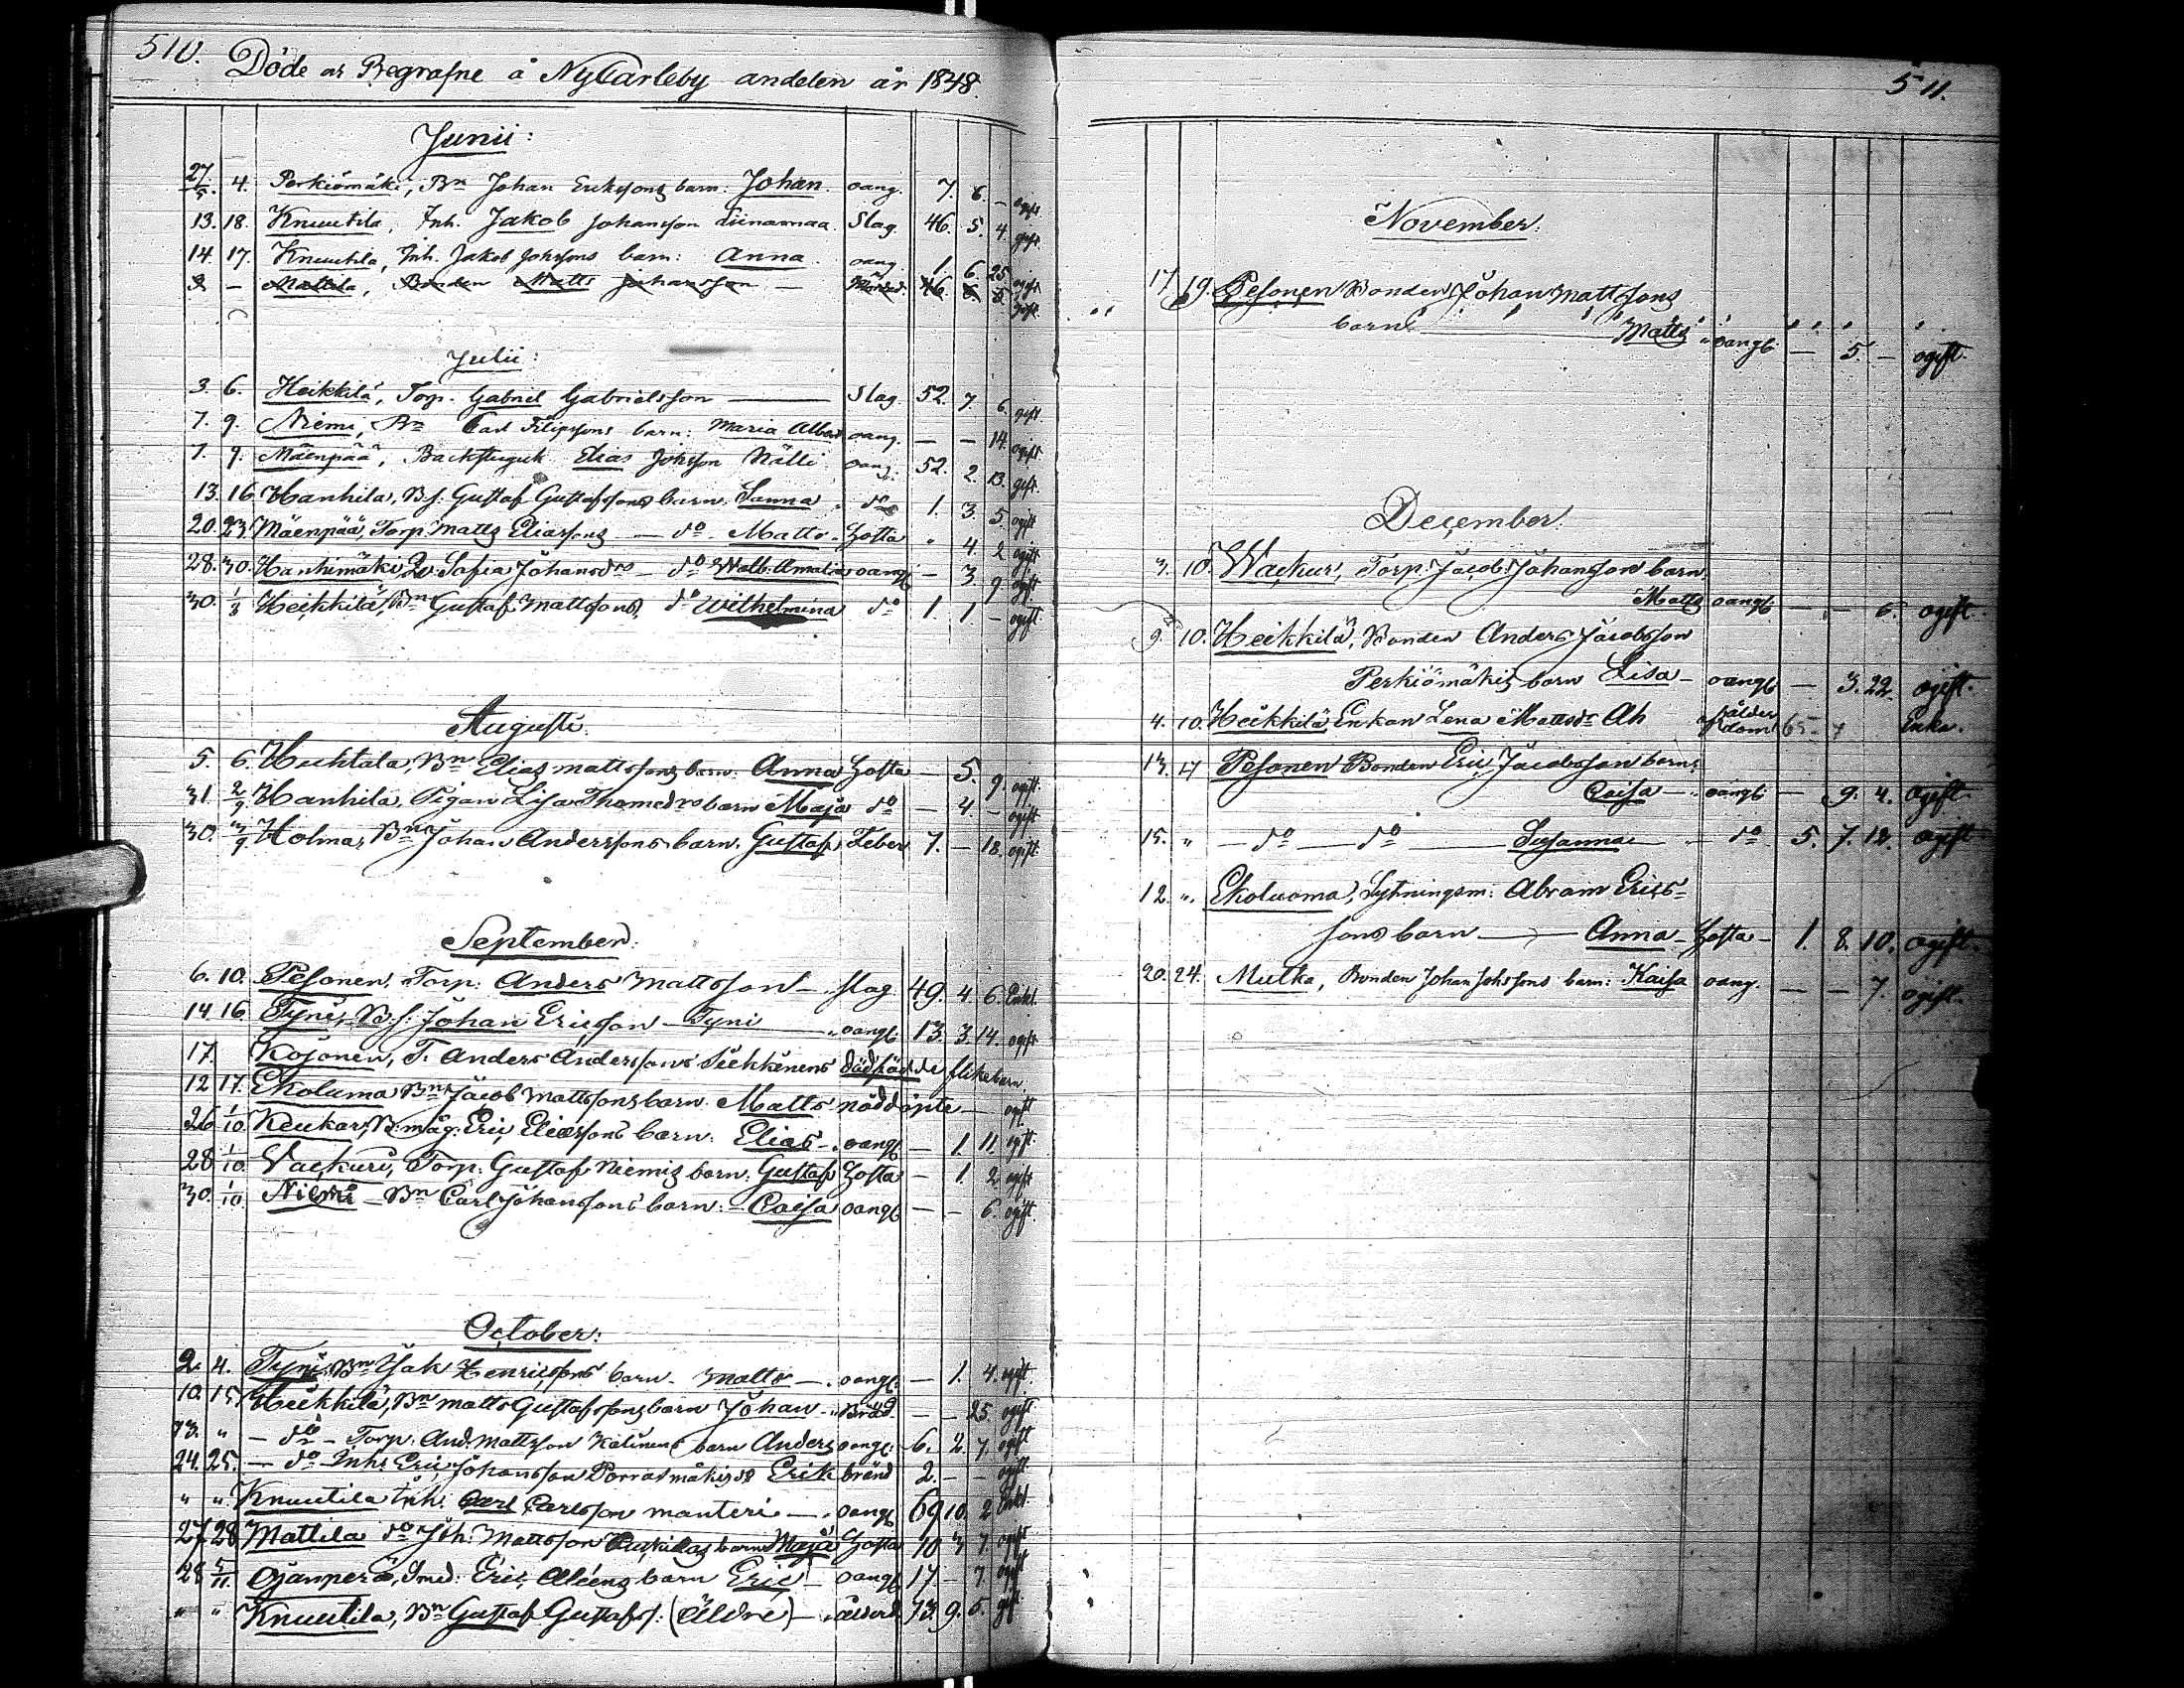 510. Döde och Begrafne å NyCarleby andelen år 1848.
Junii:
27/5. 4. Perkiömäki, Bn Johan Erikssons barn: Johan. oang. 7. 6. – ogift
13. 18. Knuutila, Inh. Jakob Johansson Liinamaa. Slag. 46. 5. 4. gift.
14. 17. Knuutila, Inh. Jakob Johssons barn: Anna. oang. 1. 6. 25. ogift
– Mattila, Bonden Matts Johansson – 46. gift.
Julii:
3. 6. Heikkilä, Torp. Gabriel Gabrielsson — Slag. 52. 7. 6. gift.
7. 9. Niemi, Bn Carl Filipssons barn: Maria oang. – – 14. ogift.
7. 9. Mäenpää, Backstuguk. Elias Johsson Nälli oang. 52. 2. 13. gift.
13. 16. Hanhila, B.s. Gustaf Gustafssons barn. Sanna. do 1. 3. 5. ogift
20. 23. Mäenpää, Torp. Matts Eliassons – do – Matts. Hosta " 4. 2 ogift
28. 30. Hanhimäki Sofia Johansdrs – do Amalia oangf – 3 9 ogift
30. 1/8 Heikkilä, Bns Gustaf Mattssons, do Wilhelmina do 1. 1 – ogift.
Augusti.
5. 6. Huhtala, Bn Elias Mattssons barn. Anna Hosta – 5. 9. ogift.
31. 2/9 Hanhila, Pigan Lisa Thomedrs barn Maja do – 4. – ogift
30. 3/9. Holma, Bns Johan Anderssons barn. Gustaf Feber 7. – 18. ogift.
September.
6. 10. Pesonen. Torp: Anders Mattsson – Slag 49. 4. 6. Enkl.
14 16 Tyni, B.s: Johan Ericsson – Tyni " oangf: 13. 3. 14. ogift
17. Kojonen, T. Anders Anderssons dödfödde flikebarn
12 17. Ekoluma Bns Jacob Mattssons barn. Matts nöddöpte – ogift
26 1/10 Keukari, B. måg. Eric Eliassons barn: Elias – oangf – 1 11. ogift.
28 1/10. Vackuri, Torp: Gustaf Niemis barn: Gustaf Hosta – 1. 2. ogift
30. 1/10 Niemi – Bn Carl Johanssons barn: – Caisa oangf – – 6. ogift.
October:
2. 4. Tyni, Bn Isak Henricssons barn. Matts –. oangf: – 1. 4. ogift.
10. 15. Heikkilä, Bn Matts Gustafssons barn Johan – Bråd. – – 25. ogift
13. " – do – Torp. And. Mattsson Kalinens barn Anders oangf: 6. 2. 7. ogift
24. 25. – do – Inhs Eric Johansson Porrasmäkis do Erik bränd 2. – – ogift
" " Knuutila Inh. Carl Carlsson Manteri –. oangf 69 10. 2 Enkl.
27 28 Mattila do Joh: Mattsson barn Maja Hosta 10 3 7. ogift
28 5/11. Ojanperä, Smed: Eric Aléens barn Eric – oangf 17. – 7. ogift
" " Knuutila, Bn Gustaf Gustafss: (Äldre) – ålderd. 73. 9. 5. gift.
511.
November.
17 19. Pesonen Bonden Johan Mattssons
barn Matts oangf – 5. – ogift.
December.
3. 10. Wackuri, Torp. Jacob Johansson barn.
Matts oangf. – – 6. ogift.
9. 10. Heikkilä, Bonden Anders Jacobsson
Perkiömäkis barn Lisa – oangf – 3. 22. ogift.
4. 10. Heikkilä, Enkan Lena Mattsdr Ah af ålderdom 65. – Enka.
13. 17 Pesonen Bonden Eric Jacobsson barn:
Caisa –. oangf: – 9. 4. ogift.
15. " – do – do – Susanna – do 5. 7. 12. ogift
12. ". Ekoluoma, Sytningsm: Abram Erics-
sons barn – Anna – Hosta – 1. 8. 10. ogift.
20. 24. Mutka, Bonden Johan Johssons barn: Kaisa oang. – – 7. ogift.